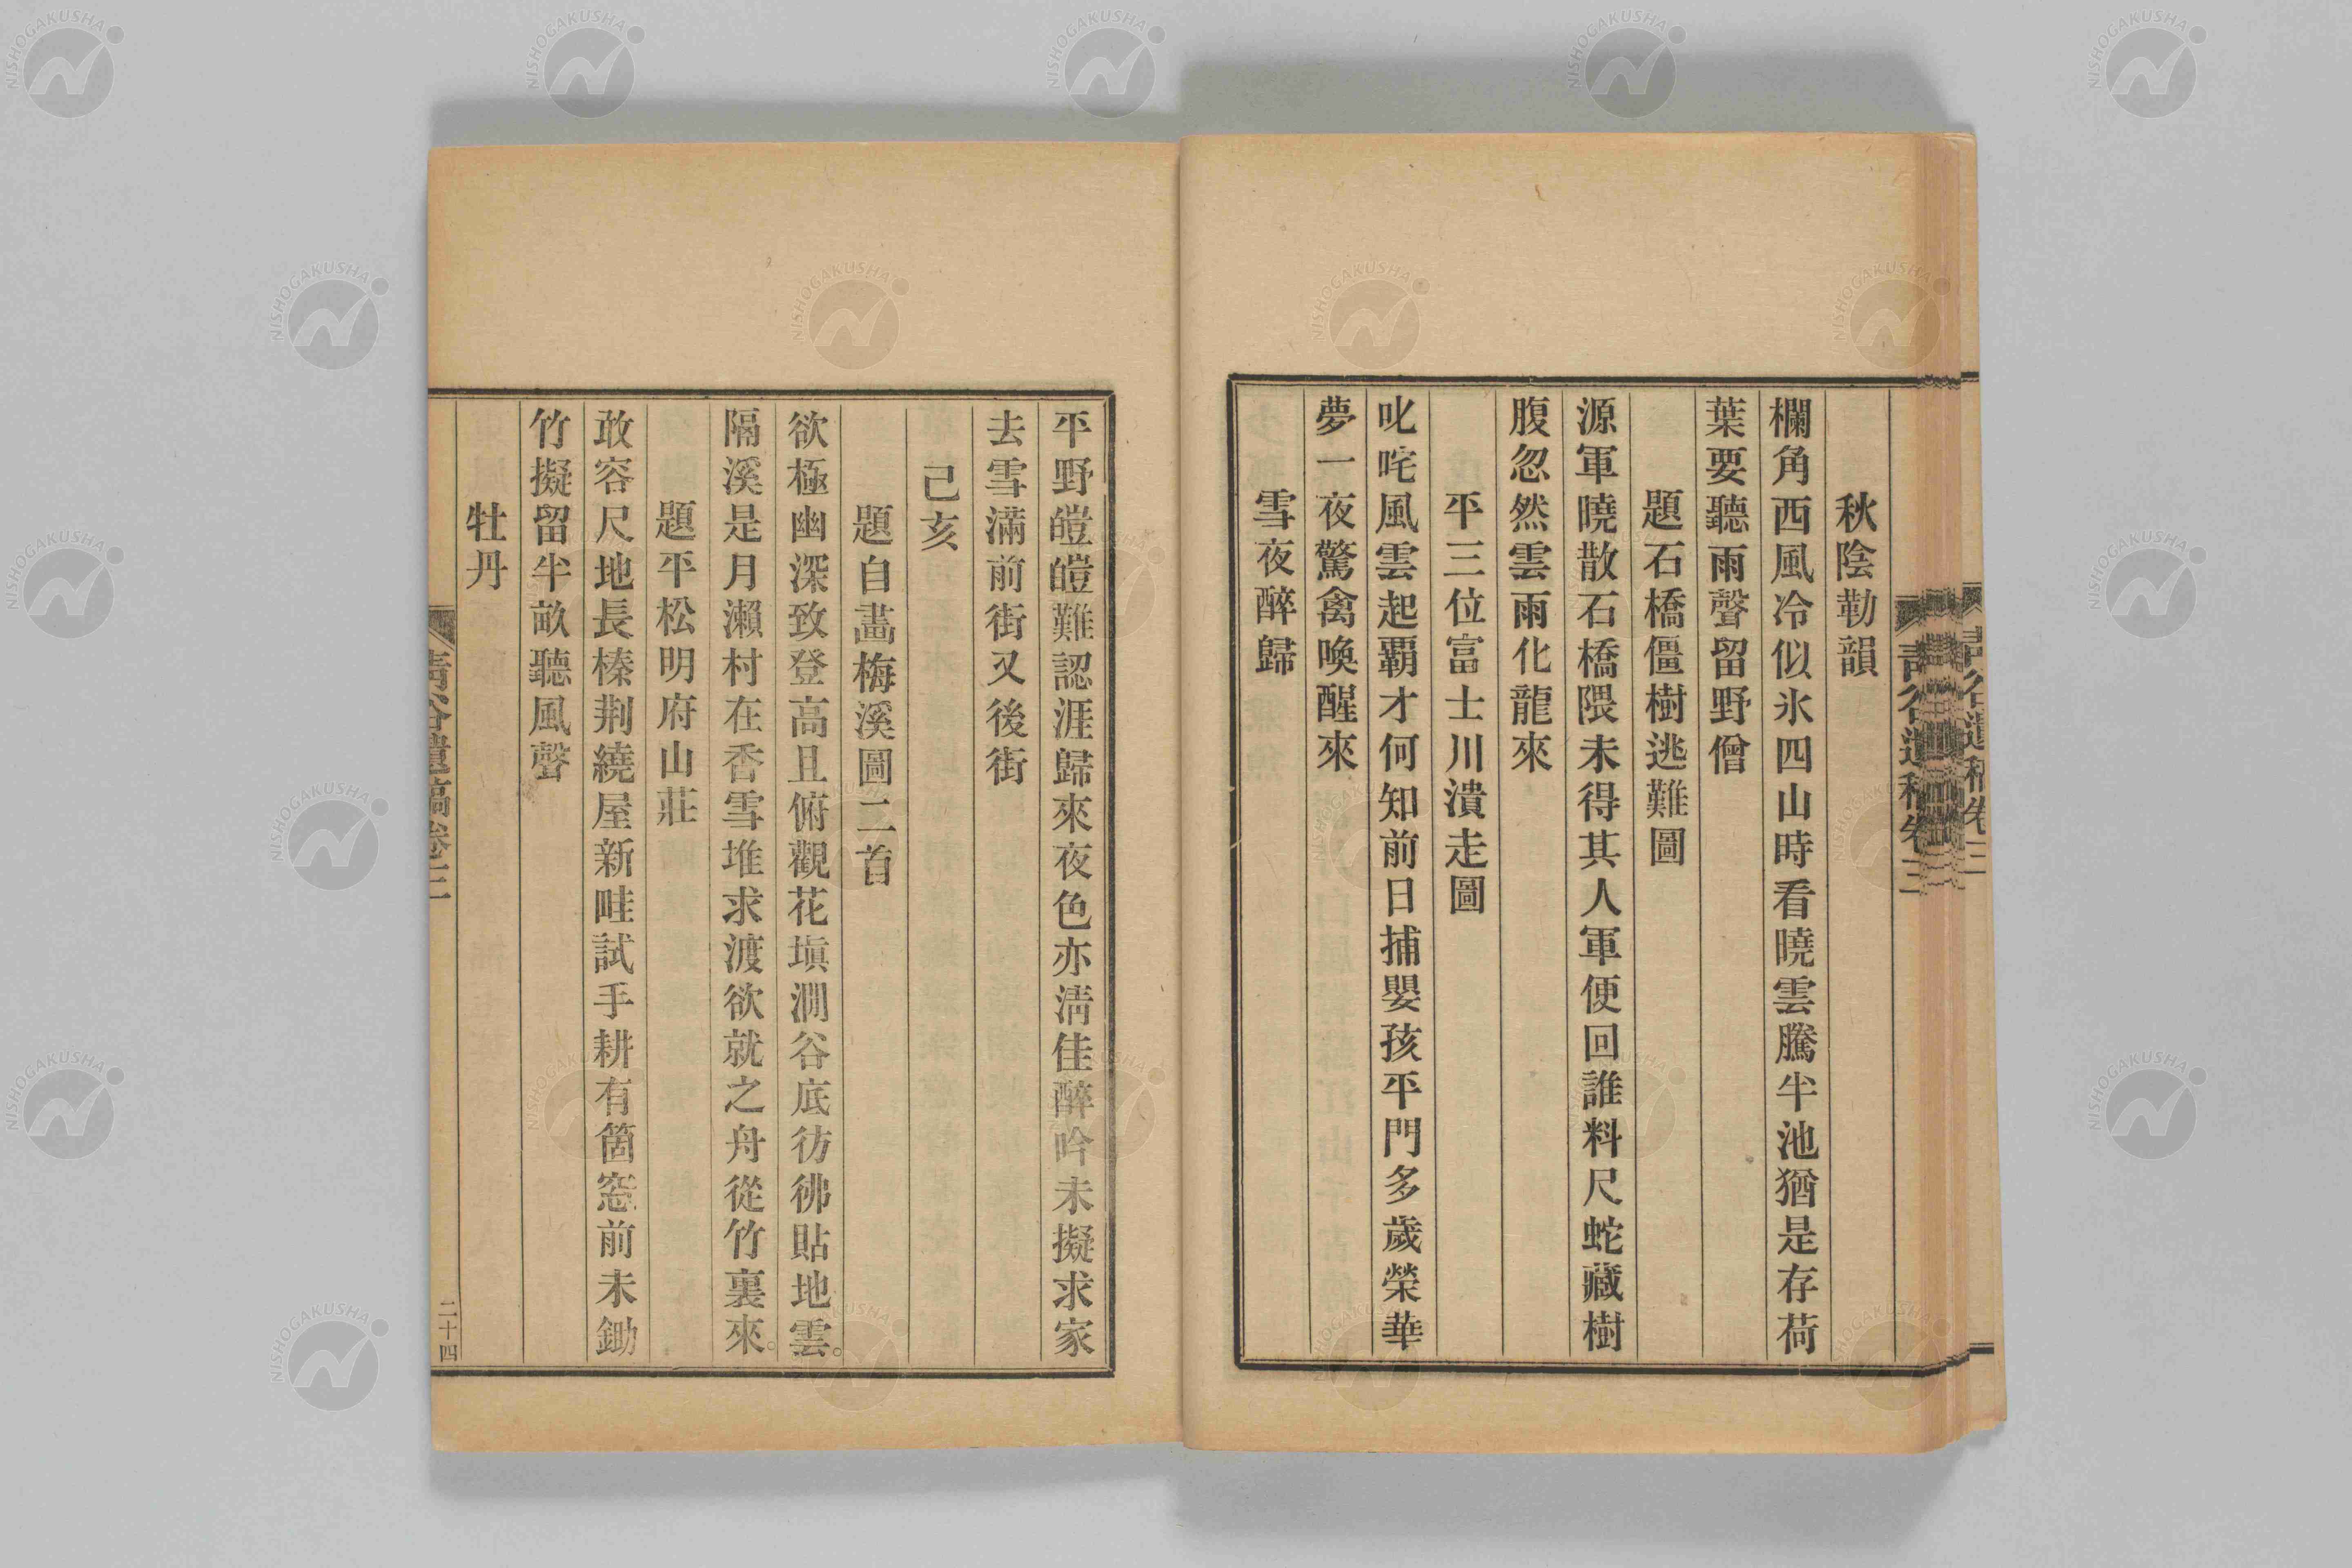 秋陰勒韻
欄角西風冷似氷四山時看曉雲騰半池猶是存荷
葉要聽雨聲留野僧
題石橋僵樹逃難圖
源軍曉散石橋隈未得其人軍便回誰料尺蛇藏樹
腹忽然雲雨化龍來
平三位富士川潰走圖
叱咤風雲起覇才何知前日捕嬰孩平門多少歲榮華
夢一夜驚禽喚醒來
雪夜醉歸
平野皚皚難認涯歸來夜色亦淸佳醉吟未擬求家
去雪滿前街又後街
己亥
題自畵梅溪圖二首
欲極幽深致登高且俯觀花塡澗谷底彷彿貼地雲。
隔溪是月瀨村在香雪堆求渡欲就之舟從竹裏來。
題平松明府山莊
敢容尺地長榛荆繞屋新畦試手耕有箇窓前未鋤
竹擬留半畝聽風聲
牡丹
靑谷遺稿卷三
二十四
NISHOGAKUSHA